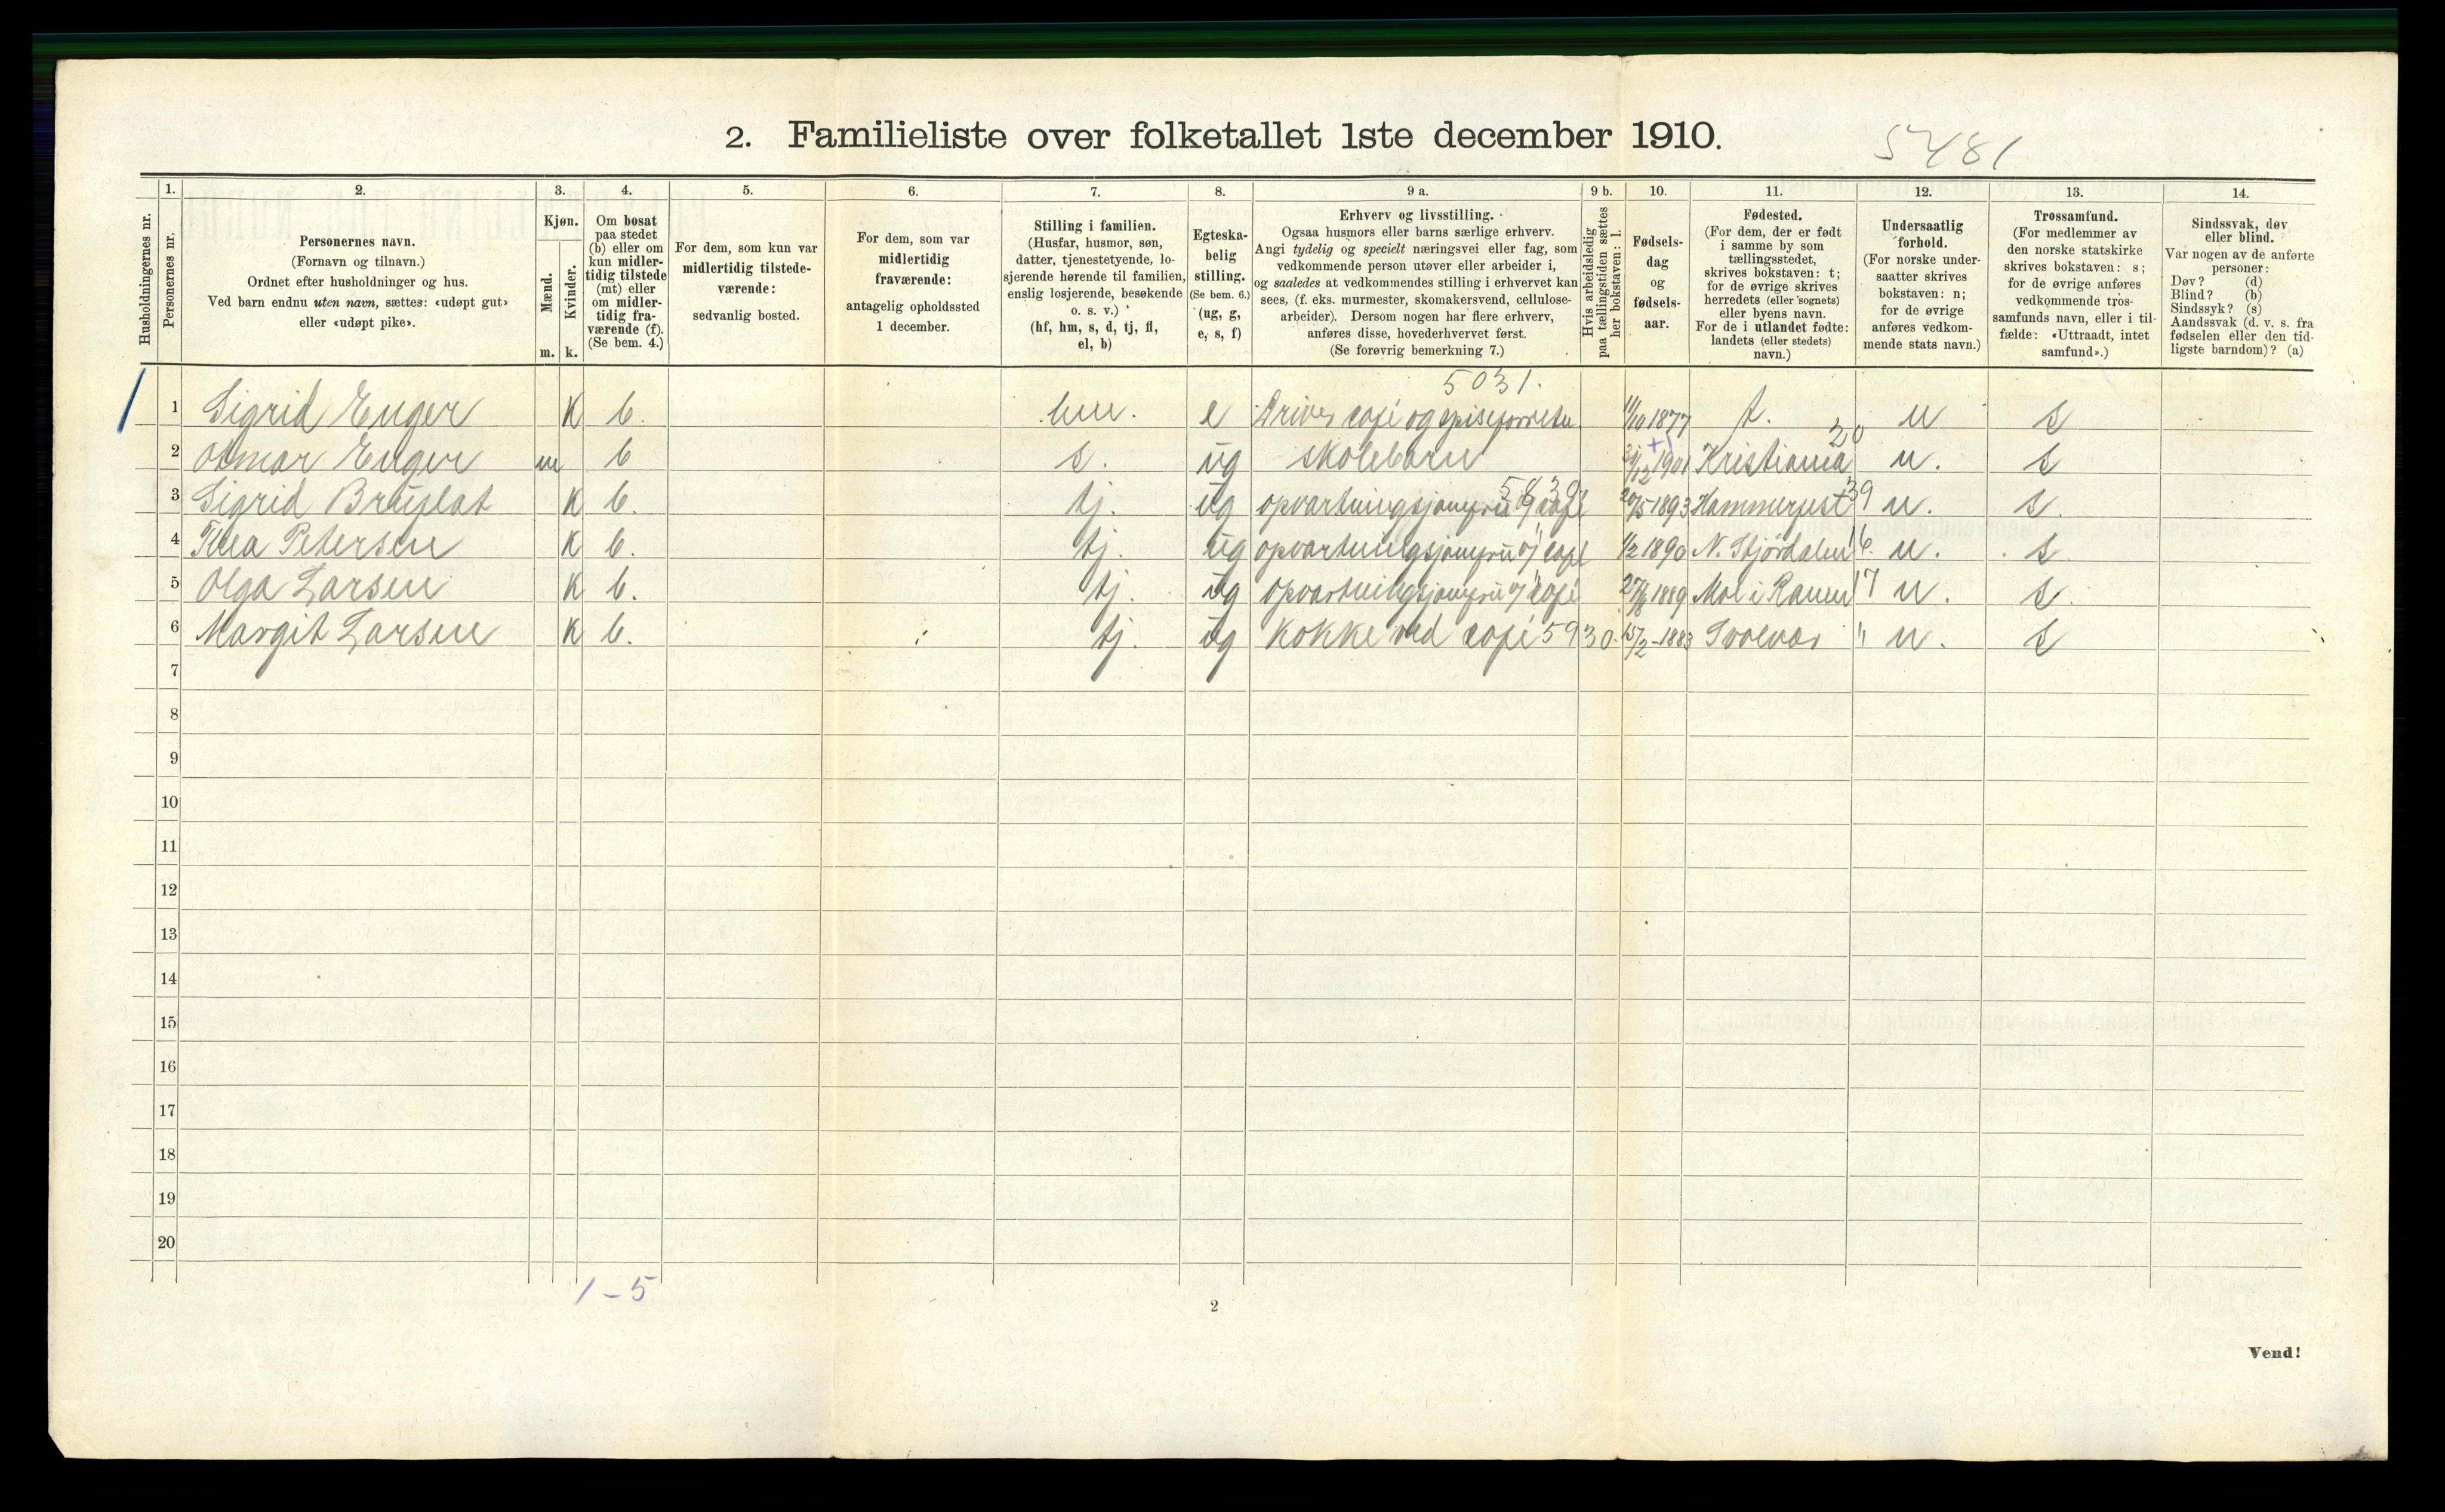 2. Familieliste over folketallet 1ste december 1910.
5481
Husholdningernes nr.
1. Personernes nr.
2.
Personernes navn.
(Fornavn og tilnavn.)
Ordnet efter husholdninger og hus.
Ved barn endnu uten navn, sættes: «udøpt gut»
eller «udøpt pike».
3.
Kjøn.
Mænd.
Kvinder.
m. k.
4.
Om bosat
paa stedet
(b) eller om
kun midler-
tidig tilstede
(mt) eller
om midler-
tidig fra-
værende (f).
(Se bem. 4.)
5.
For dem, som kun var
midlertidig tilstede-
værende:
sedvanlig bosted.
6.
For dem, som var
midlertidig
fraværende:
antagelig opholdssted
1 december.
7.
Stilling i familien.
(Husfar, husmor, søn,
datter, tjenestetyende, lo-
sjerende hørende til familien,
enslig losjerende, besøkende
o. s. v.)
(hf, hm, s, d, tj, fl,
el, b)
8.
Egteska-
belig
stilling.
(Se bem. 6.)
(ug, g,
e, s, f)
9 a.
Erhverv og livsstilling.
Ogsaa husmors eller barns særlige erhverv.
Angi tydelig og specielt næringsvei eller fag, som
vedkommende person utøver eller arbeider i,
og saaledes at vedkommendes stilling i erhvervet kan
sees, (f. eks. murmester, skomakersvend, cellulose-
arbeider). Dersom nogen har flere erhverv,
anføres disse, hovederhvervet først.
(Se forøvrig bemerkning 7.)
9 b.
Hvis arbeidsledig
paa tællingstiden sættes
her bokstaven: l.
10.
Fødsels-
dag
og
fødsels-
aar.
11.
Fødested.
(For dem, der er født
i samme by som
tællingsstedet,
skrives bokstaven: t;
for de øvrige skrives
herredets (eller sognets)
eller byens navn.
For de i utlandet fødte:
landets (eller stedets)
navn.)
12.
Undersaatlig
forhold.
(For norske under-
saatter skrives
bokstaven: n;
for de øvrige
anføres vedkom-
mende stats navn.)
13.
Trossamfund.
(For medlemmer av
den norske statskirke
skrives bokstaven: s;
for de øvrige anføres
vedkommende tros-
samfunds navn, eller i til-
fælde: «Uttraadt, intet
samfund».)
14.
Sindssvak, døv
eller blind.
Var nogen av de anførte
personer:
Døv? (d)
Blind? (b)
Sindssyk? (s)
Aandssvak (d. v. s. fra
fødselen eller den tid-
ligste barndom)? (a)
5031.
1 1 Sigrid Enger K b. hm. e Driver café og spiseforretn 11/10 1877 t. n s
2 Osmar Enger m b s. ug skolebarn 1901 Kristiania 20 n. s
3 Sigrid K b. tj. ug opvartningsjomfru café 20/5-1893 Hammerfest 39 n. s.
4 Thea Petersen K b. tj. ug opvartningsjomfru café 1/2 1890 N. Stjørdalen 16. n. s.
5 Olga Larsen K b. tj. ug opvartningsjomfru café 1889 Mo i Ranen 17 n. s.
6 Margit Larsen K b. tj. ug Kokke ved café 5930. 15/2-1883 Svolvær " n. s
7
8
9
10
11
12
13
14
15
16
17
18
19
20
1-5
2
Vend!